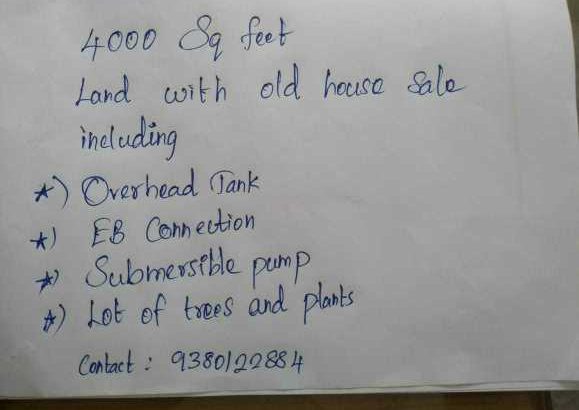 4000 Sq feet
Land with old house Sale
including
*) Overhead Tank
*) EB Connection
*) Submersible pump
*) Lot of trees and plants
Contact : 9380122884